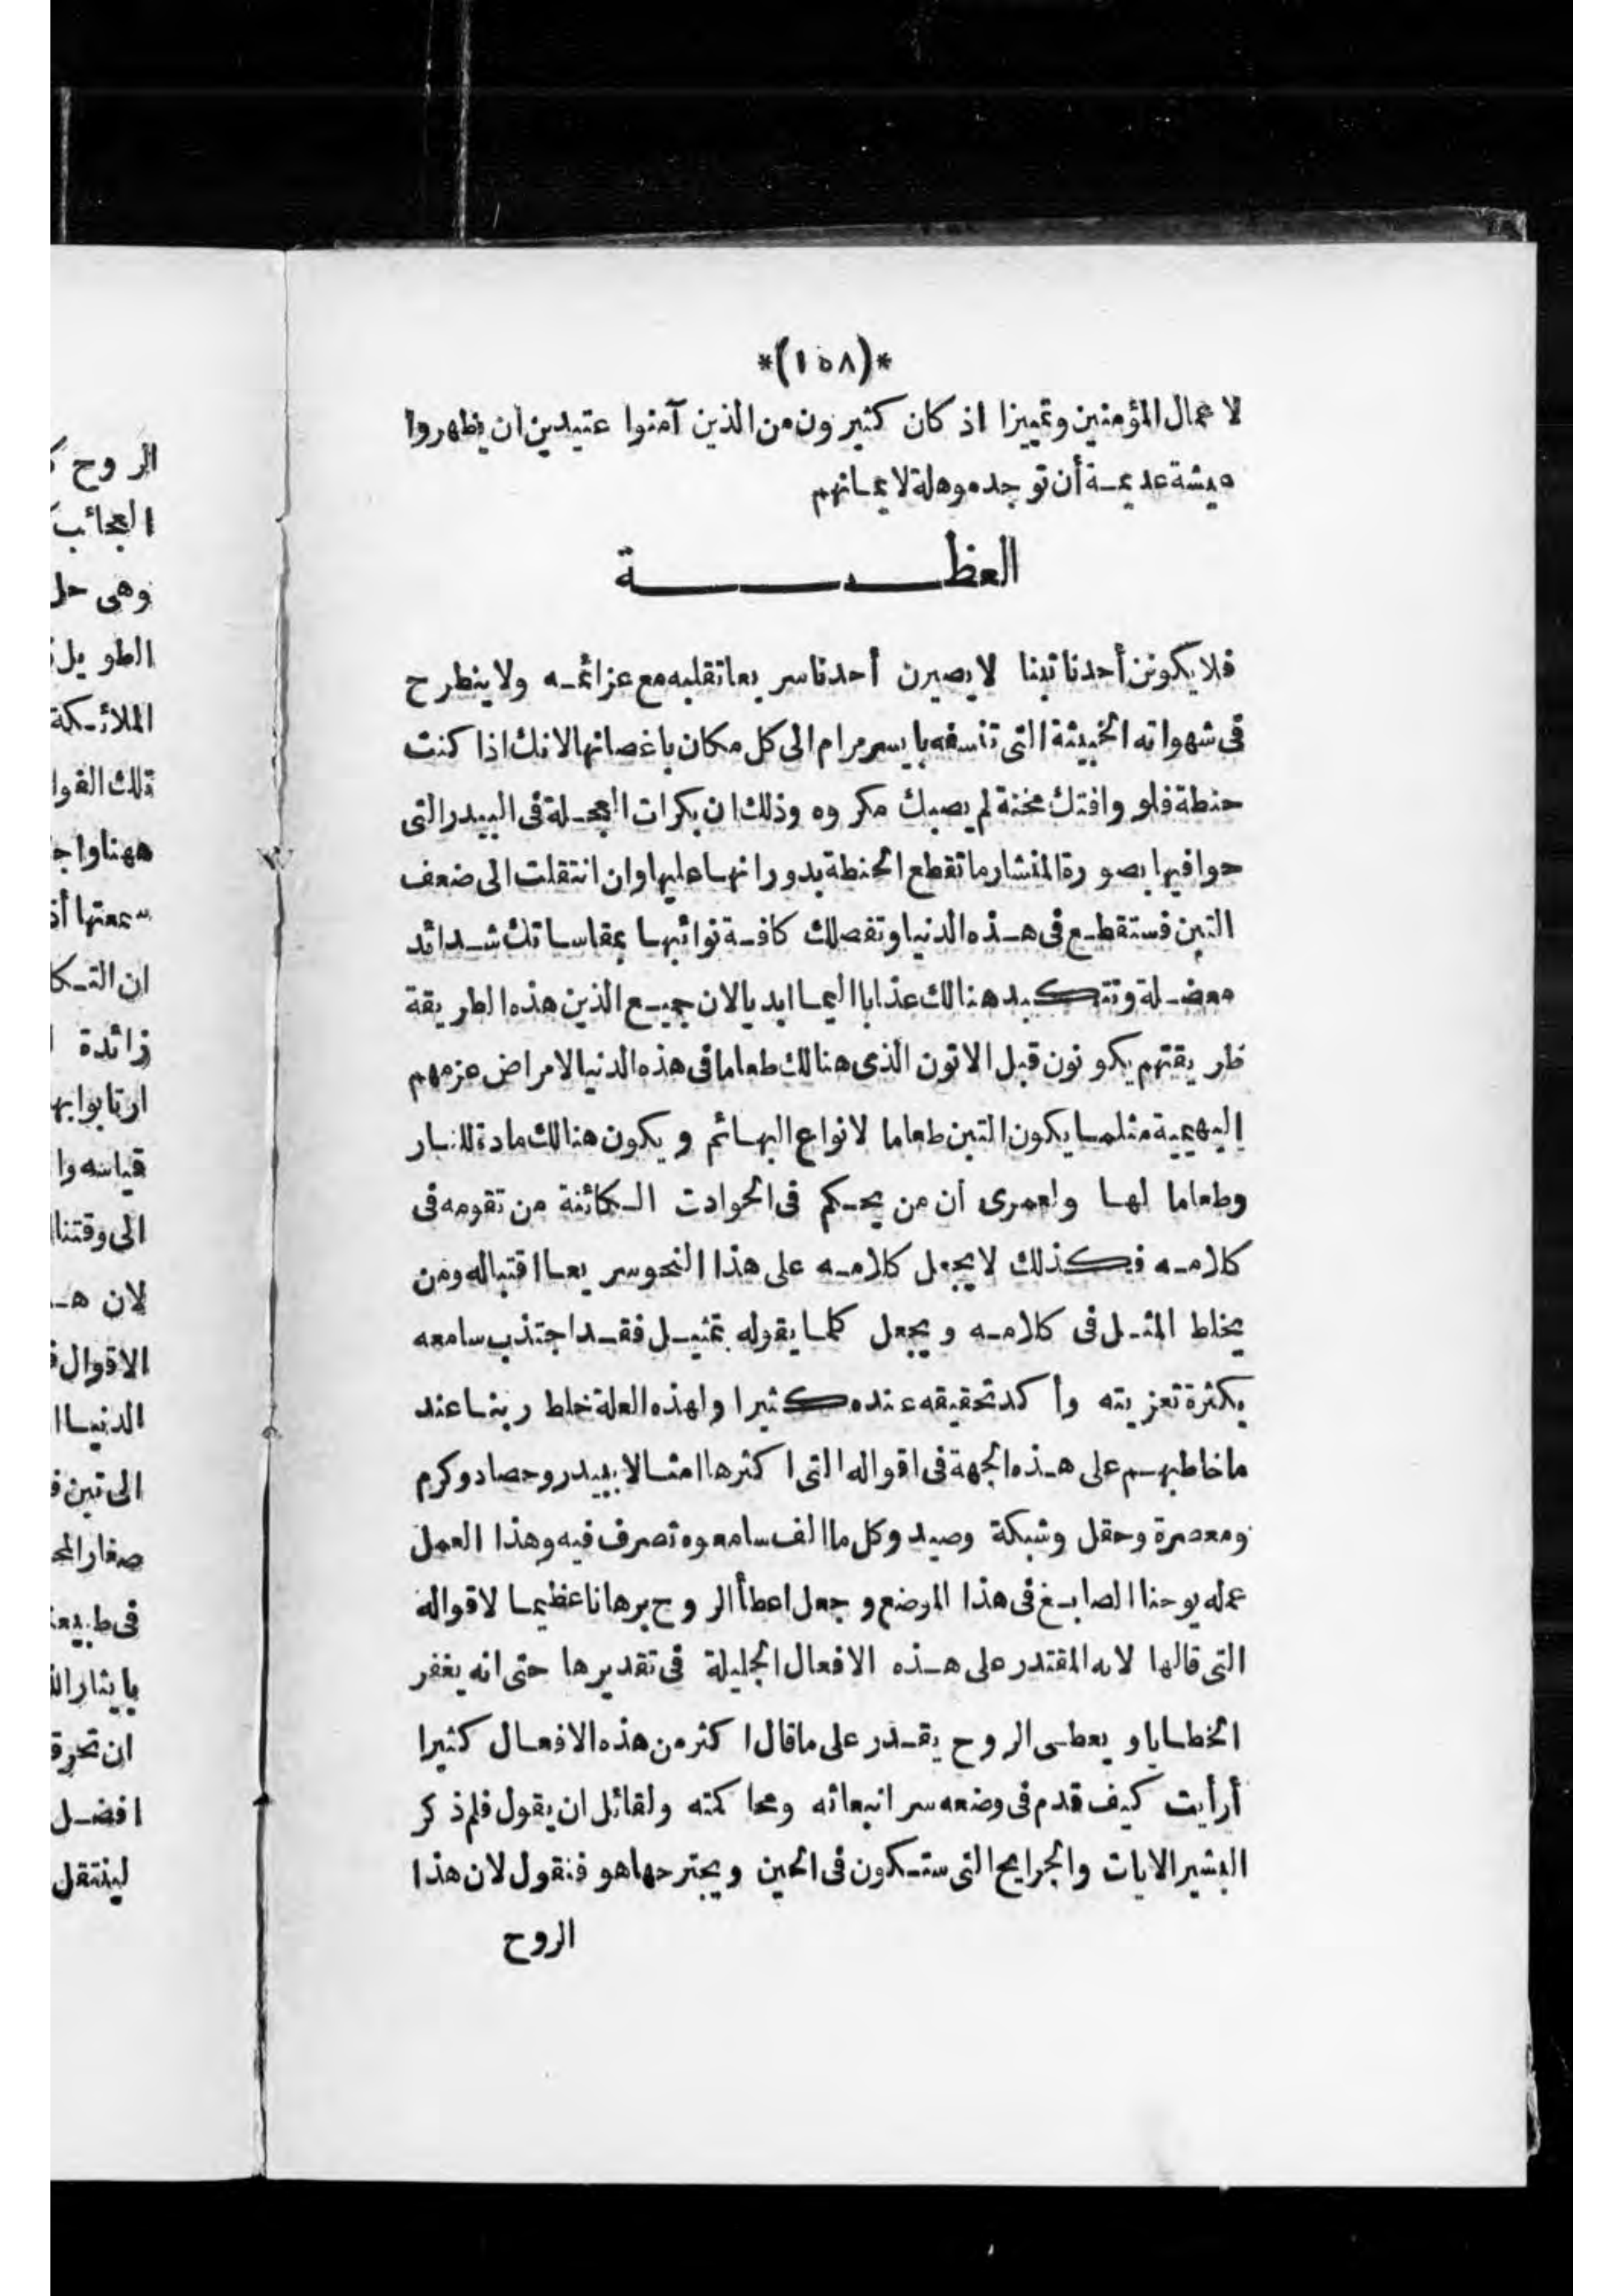 *(١٥٨)*
لاعمال المؤمنين وتمييزا اذ كان كثيرون من الذين آمنوا عتيدين ان يظهروا
عيشة عديمة أن توجد موهلة لايمانهم
العظــــــة
فلا يكونن أحدنا تبنا لا يصيرن أحدنا سريعا تقلبه مع عزائمه ولا ينطرح
فى شهواته الخبيثة التى تنسفه بايسر مرام الى كل مكان باغصانها لانك اذا كنت
حنطة فلو وافتك محنة لم يصبك مكروه وذلك ان بكرات العجلة فى البيدر التى
حوافيها بصورة المنشار ما تقطع الحنطة بدورانها عليها وان انتقلت الى ضعف
التبن فستقطع فى هذه الدنيا وتفصلك كافة نوائبها بمقاساتك شدائد
معضلة وتتكبد هنالك عذابا اليما ابديا لان جميع الذين هذه الطريقة
طريقتهم يكونون قبل الاتون الذى هنالك طعاما فى هذه الدنيا لامراض عزمهم
البهيمية مثلما يكون التبن طعاما لانواع البهائم ويكون هنالك مادة للنار
وطعاما لها ولعمرى ان من يحكم فى الحوادت الكائنة من تقومه فى
كلامه فكذلك لا يجعل كلامه على هذا النحو سريعا اقتباله ومن
يخلط المثل فى كلامه ويجعل كلما يقوله تمثيل فقد اجتذب سامعه
بكثرة تعزيته وأكد تحقيقه عنده كثيرا ولهذه العلة خلط ربنا عند
ما خاطبهم على هذه الجهة فى اقواله التى اكثرها امثالا ببيدر وحصاد وكرم
ومعصرة وحقل وشبكة وصيد وكل ما الف سامعوه تصرف فيه وهذا العمل
عمله يوحنا الصابغ فى هذا الموضع وجعل اعطأ الروح برهانا عظيما لاقواله
التى قالها لانه المقتدر على هذه الافعال الجليلة فى تقديرها حتى انه يغفر
الخطايا ويعطى الروح يقدر على ما قال اكثر من هذه الافعال كثيرا
أرأيت كيف قدم فى وضعه سر انبعاثه ومحاكمته ولقائل ان يقول فلم ذكر
البشير الايات والجرايح التى ستكون فى الحين ويجترحها هو فنقول لان هذا
الروح
الروح
العجائب
وهى حل
الطويل
الملائكة
تلك الفوا
ههنا واج
سمعتها أذ
ان التكا
زائدة
ارتابوا بها
قياسه وا
الى وقتنا
لان ه
الاقوال
الدنيا ا
الى تبن ف
صغار المح
فى طبيعة
بايثار ال
ان تحرق
افضل
لينتقل